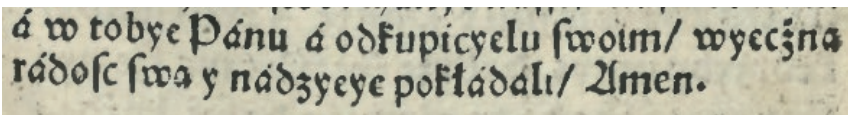 á w tobye Pánu á odkupicyelu ſwoim/ wyecżną
rádoſc ſwą y nádzyeye pokłádáli/ Amen.